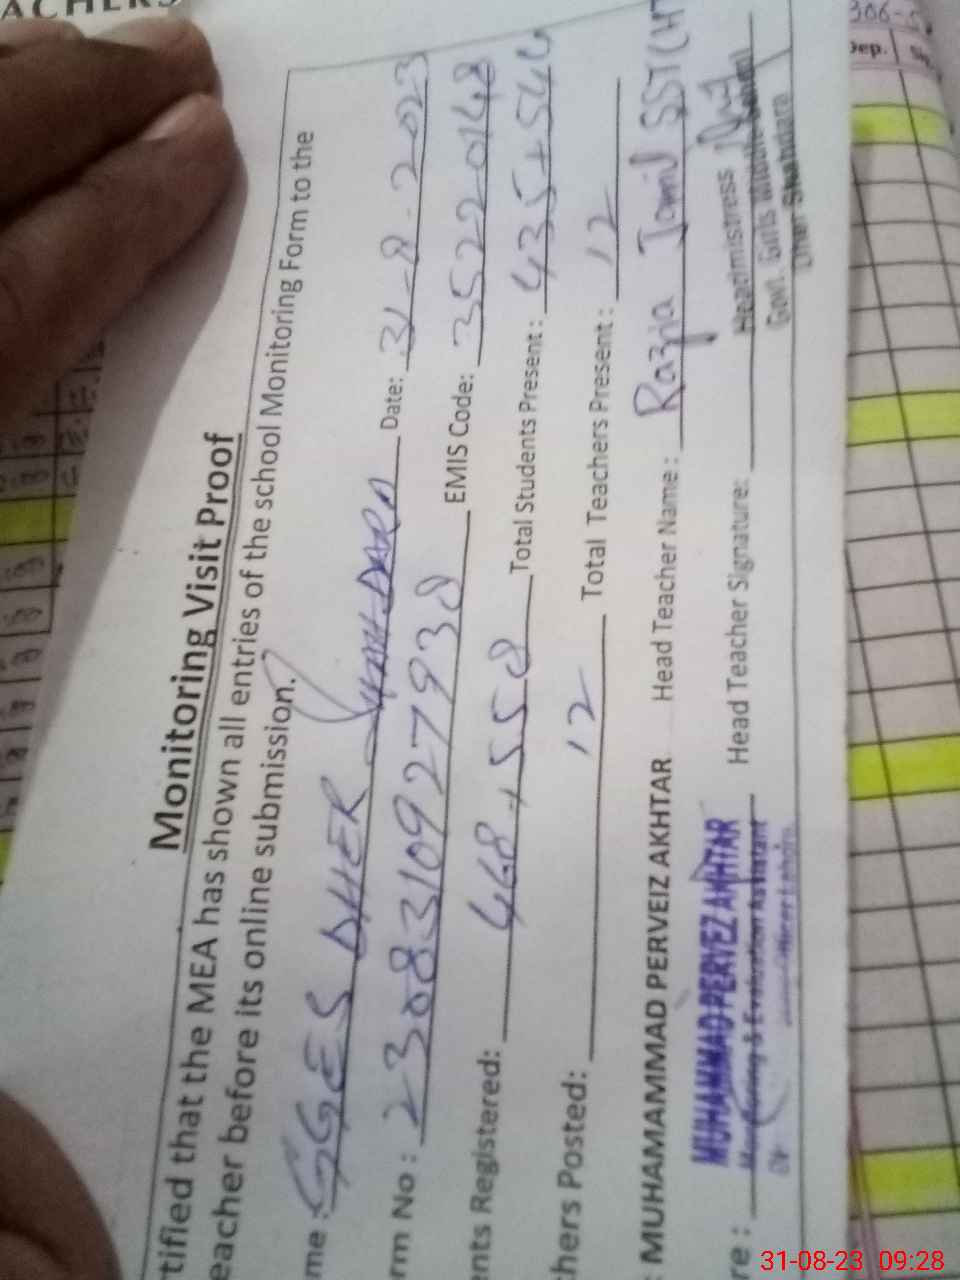 ACHERS
Monitoring Visit Proof
tified that the MEA has shown all entries of the school Monitoring Form to the
eacher before its online submission.
me : GGES DHER Date: 31-8-2023
rm No : 2308310927938 EMIS Code: 35220148
nts Registered: 468+558 Total Students Present : 435+544
hers Posted: 12 Total Teachers Present : 12
: MUHAMAMMAD PERVEIZ AKHTAR Head Teacher Name : Razia Jamil SST
re : Head Teacher Signature:
MUHAMMAD PERVEZ AKHTAR
& Evaluation Assistant
Headmistress
Govt. Girls
306-5
Dep.
31-08-23 09:28